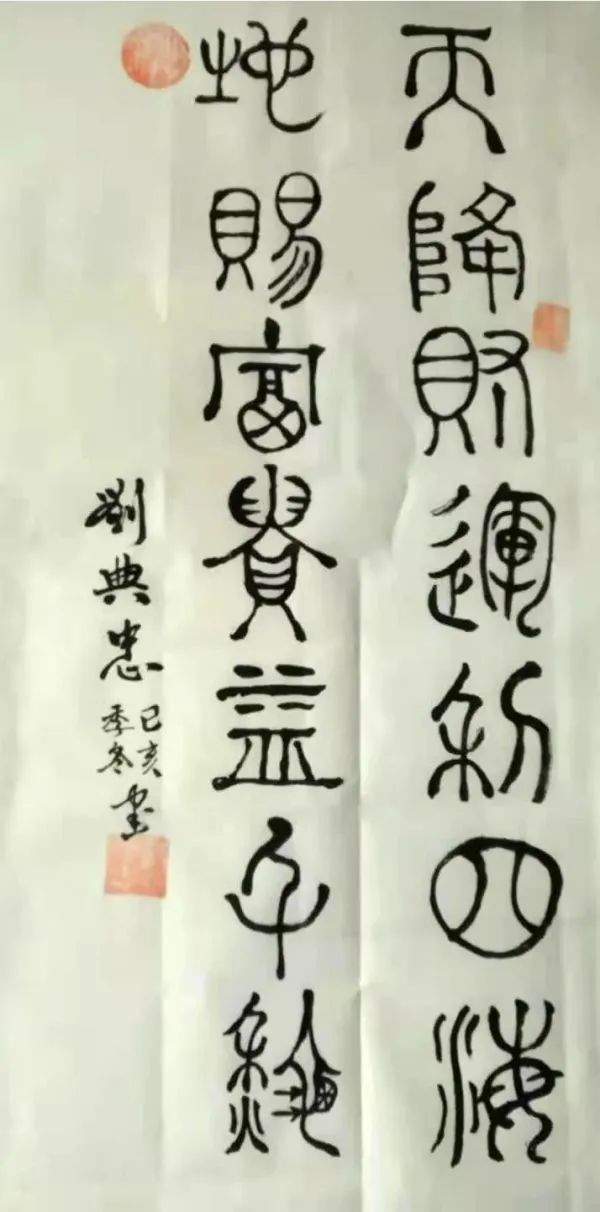 天降財運利四海
地賜富貴益千秋
己亥
季冬
劉典忠書